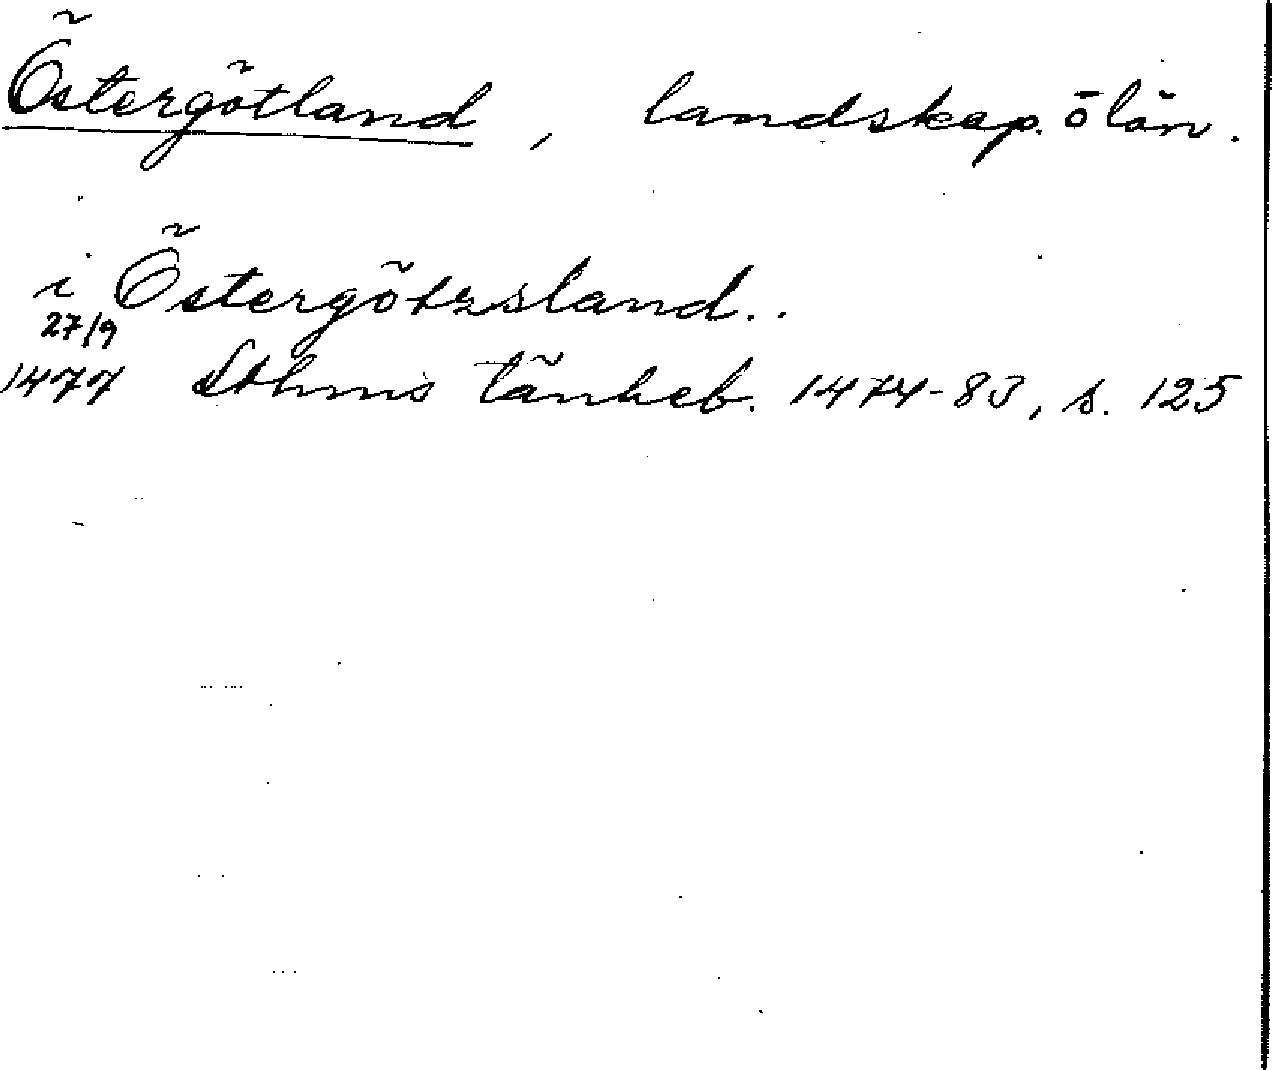 Östergötland, landskap o län.
i Östergötzsland..
27/9
1477 Sthms tänkeb. 1474-83, s. 125